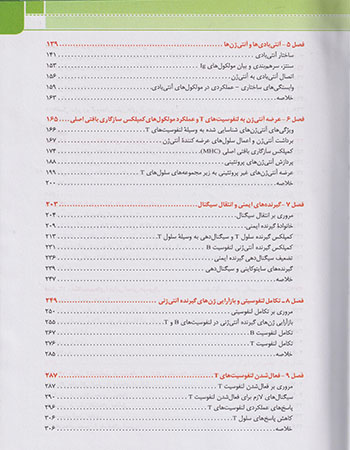 فصل ۵ - آنتی‌بادی‌ها و آنتی‌ژن‌ها ۱۳۹
ساختار آنتی‌بادی ۱۴۱
سنتز، سرهم‌بندی و بیان مولکول‌های Ig ۱۵۳
اتصال آنتی‌بادی به آنتی‌ژن ۱۵۶
وابستگی‌های ساختاری - عملکردی در مولکول‌های آنتی‌بادی ۱۵۹
خلاصه ۱۶۳
فصل ۶ - عرضه آنتی‌ژن به لنفوسیت‌های T و عملکرد مولکول‌های کمپلکس سازگاری بافتی اصلی ۱۶۵
ویژگی‌های آنتی‌ژن‌های شناسایی شده به وسیلۀ لنفوسیت‌های T ۱۶۶
برداشت آنتی‌ژن و اعمال سلول‌های عرضه کنندۀ آنتی‌ژن ۱۶۷
کمپلکس سازگاری بافتی اصلی (MHC) ۱۷۴
پردازش آنتی‌ژن‌های پروتئینی ۱۸۸
عرضه آنتی‌ژن‌های غیر پروتئینی به زیر مجموعه‌های سلول‌های T ۱۹۹
خلاصه ۲۰۰
فصل ۷ - گیرنده‌های ایمنی و انتقال سیگنال ۲۰۳
مروری بر انتقال سیگنال ۲۰۴
خانوادۀ گیرندۀ ایمنی ۲۰۹
کمپلکس گیرنده سلول T و سیگنال‌دهی به وسیلۀ سلول T ۲۱۳
کمپلکس گیرنده آنتی ژنی لنفوسیت B ۲۳۱
تضعیف سیگنال‌دهی گیرنده ایمنی ۲۳۶
گیرنده‌های سایتوکاینی و سیگنال‌دهی ۲۳۹
خلاصه ۲۴۷
فصل ۸ - تکامل لنفوسیتی و بازآرایی ژن‌های گیرنده آنتی‌ژنی ۲۴۹
مروری بر تکامل لنفوسیتی ۲۵۰
بازآرایی ژن‌های گیرنده آنتی‌ژنی در لنفوسیت‌های B و T ۲۵۵
تکامل لنفوسیت B ۲۶۷
تکامل لنفوسیت T ۲۷۶
خلاصه ۲۸۵
فصل ۹ - فعال‌شدن لنفوسیت‌های T ۲۸۷
مروری بر فعال‌شدن لنفوسیت T ۲۸۷
سیگنال‌های لازم برای فعال‌شدن لنفوسیت T ۲۹۰
پاسخ‌های عملکردی لنفوسیت‌های T ۲۹۶
کاهش پاسخ‌های سلول T ۳۰۶
خلاصه ۳۰۶